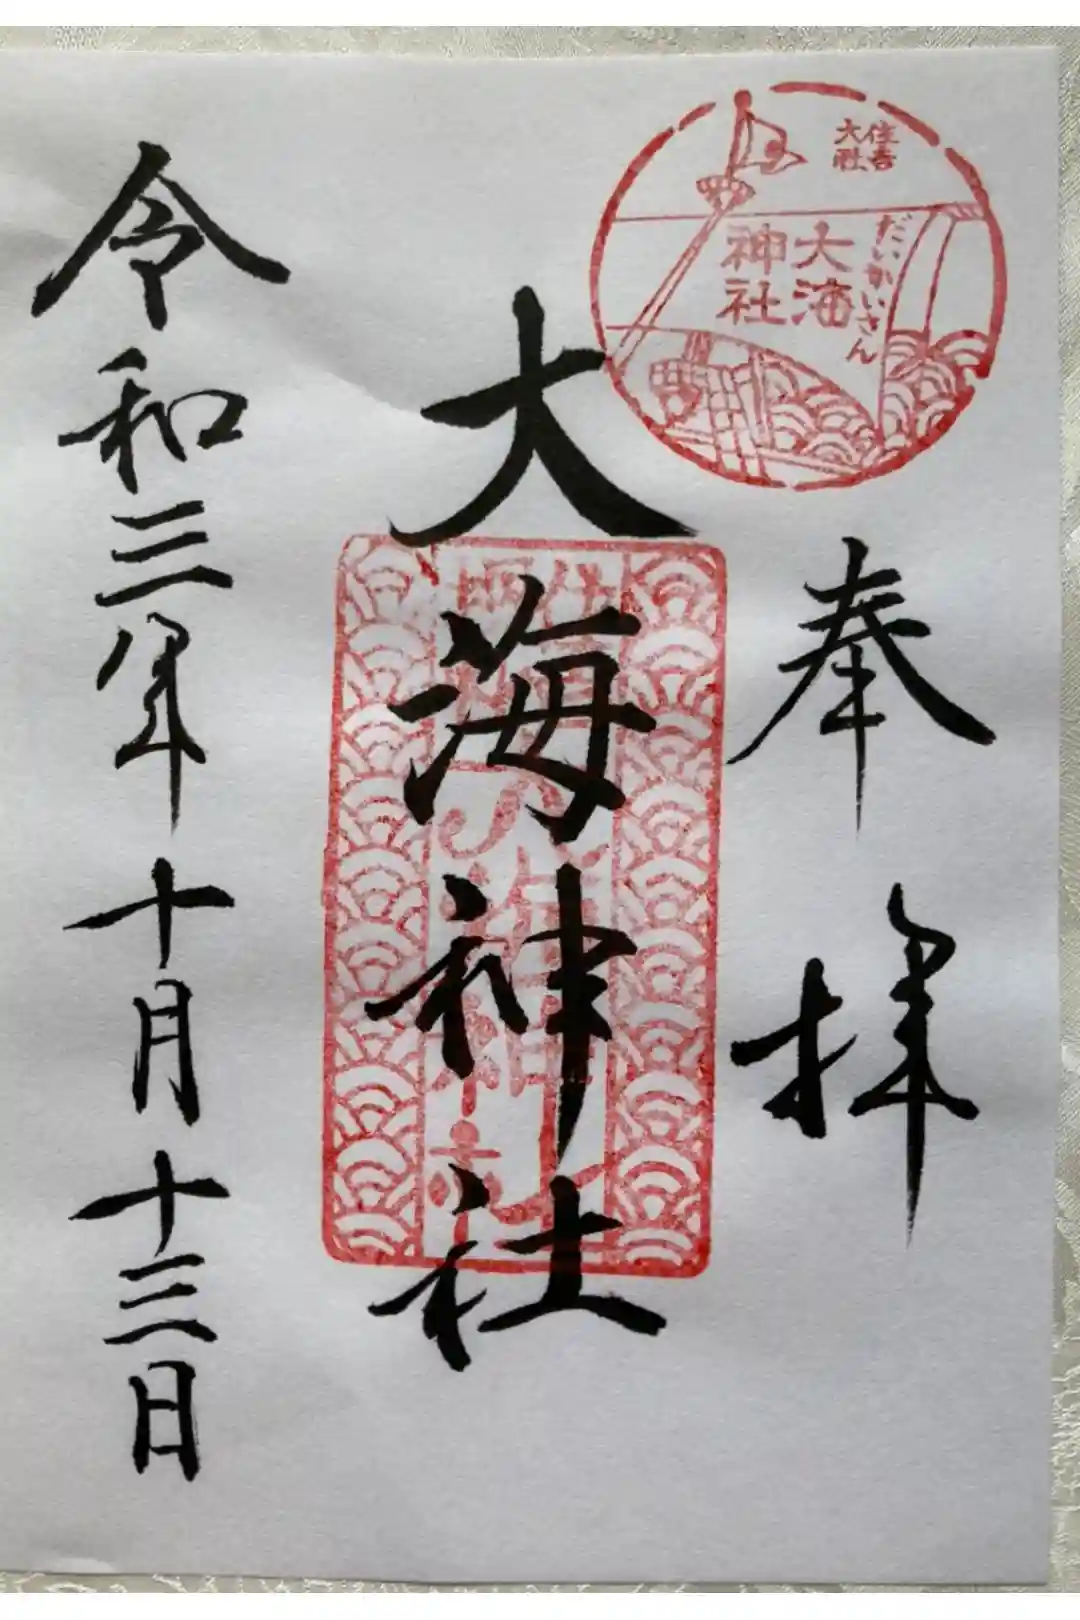 住吉
大社
だいかいさん
大海
神社
奉拝
大海神社
令和三年十月十三日